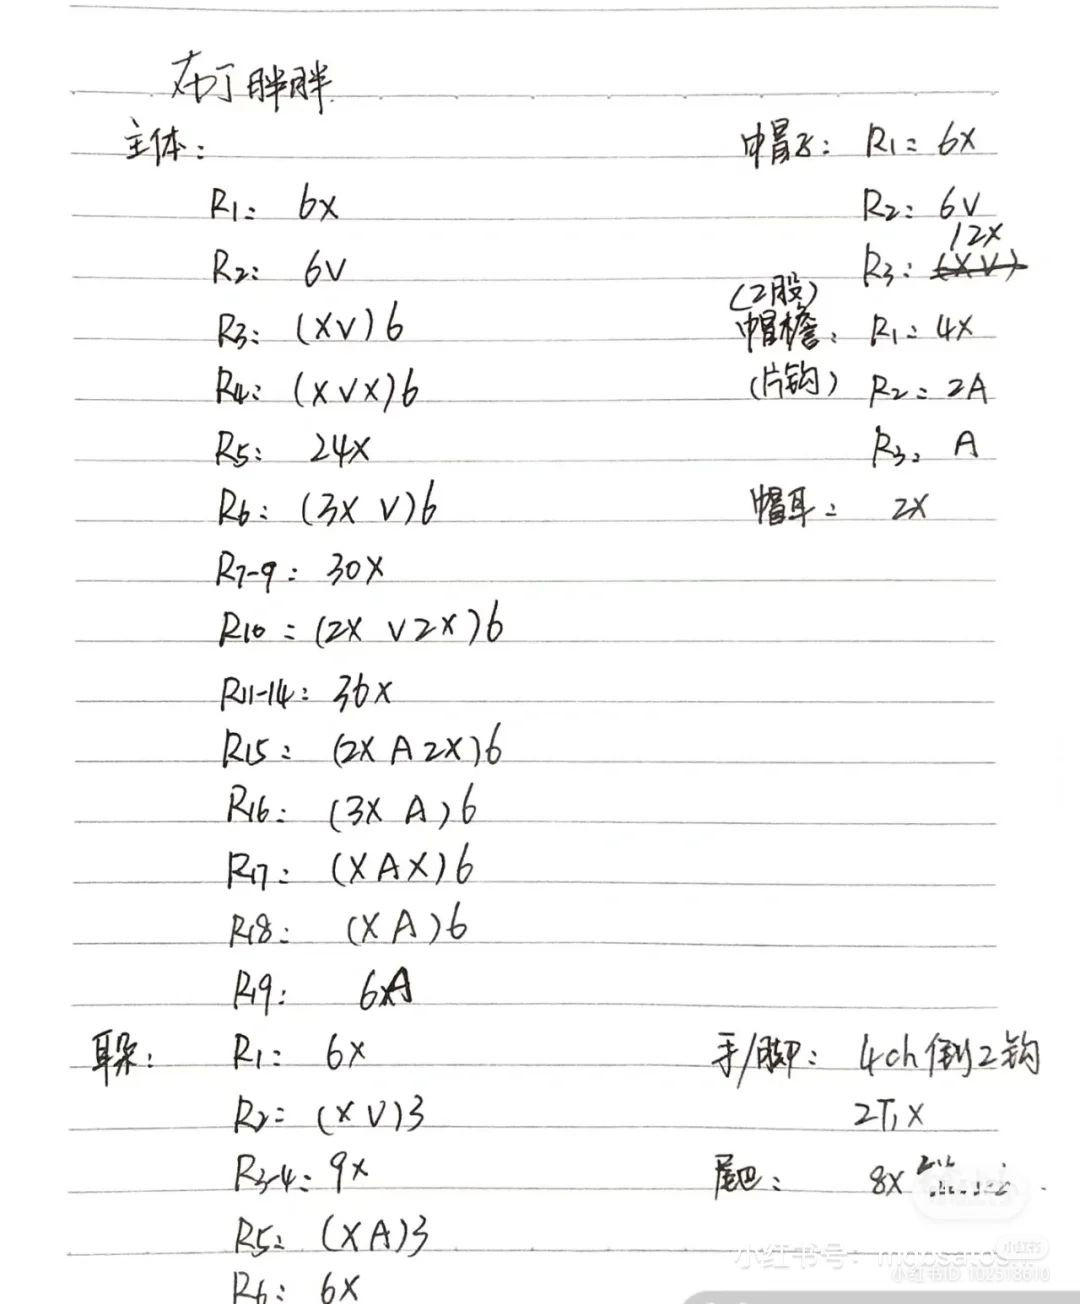 布丁胖胖
主体:
R1: 6X
R2: 6V
R3: (XV)6
R4: (XVX)6
R5: 24X
R6: (3X V)6
R7-9: 30X
R10: (2X V 2X)6
R11-14: 36X
R15: (2X A 2X)6
R16: (3X A)6
R17: (XAX)6
R18: (XA)6
R19: 6A
耳朵: R1: 6X
R2: (XV)3
R3-4: 9X
R5: (XA)3
R6: 6X
帽子: R1: 6X
R2: 6V
12X
R3: (XV)
(2股)
帽檐: R1: 4X
(片钩) R2: 2A
R3: A
帽耳: 2X
手/脚: 4ch倒2钩
2T,X
尾巴: 8X
小红书号:
小红书
小红书ID 102518610